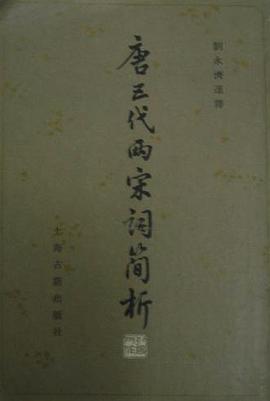 劉永濟選釋
唐五代兩宋詞簡析
上海古籍出版社